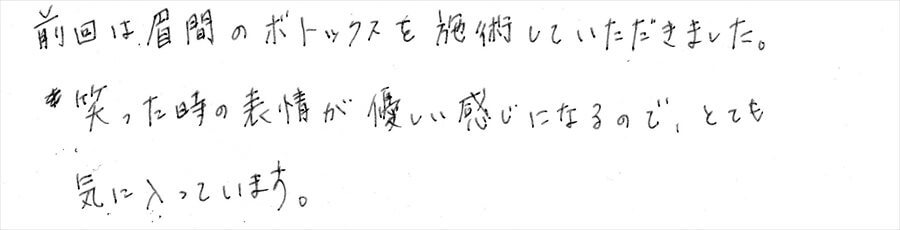 前回は眉間のボトックスを施術していただきました。
*笑った時の表情が優しい感じになるので、とても
気に入っています。